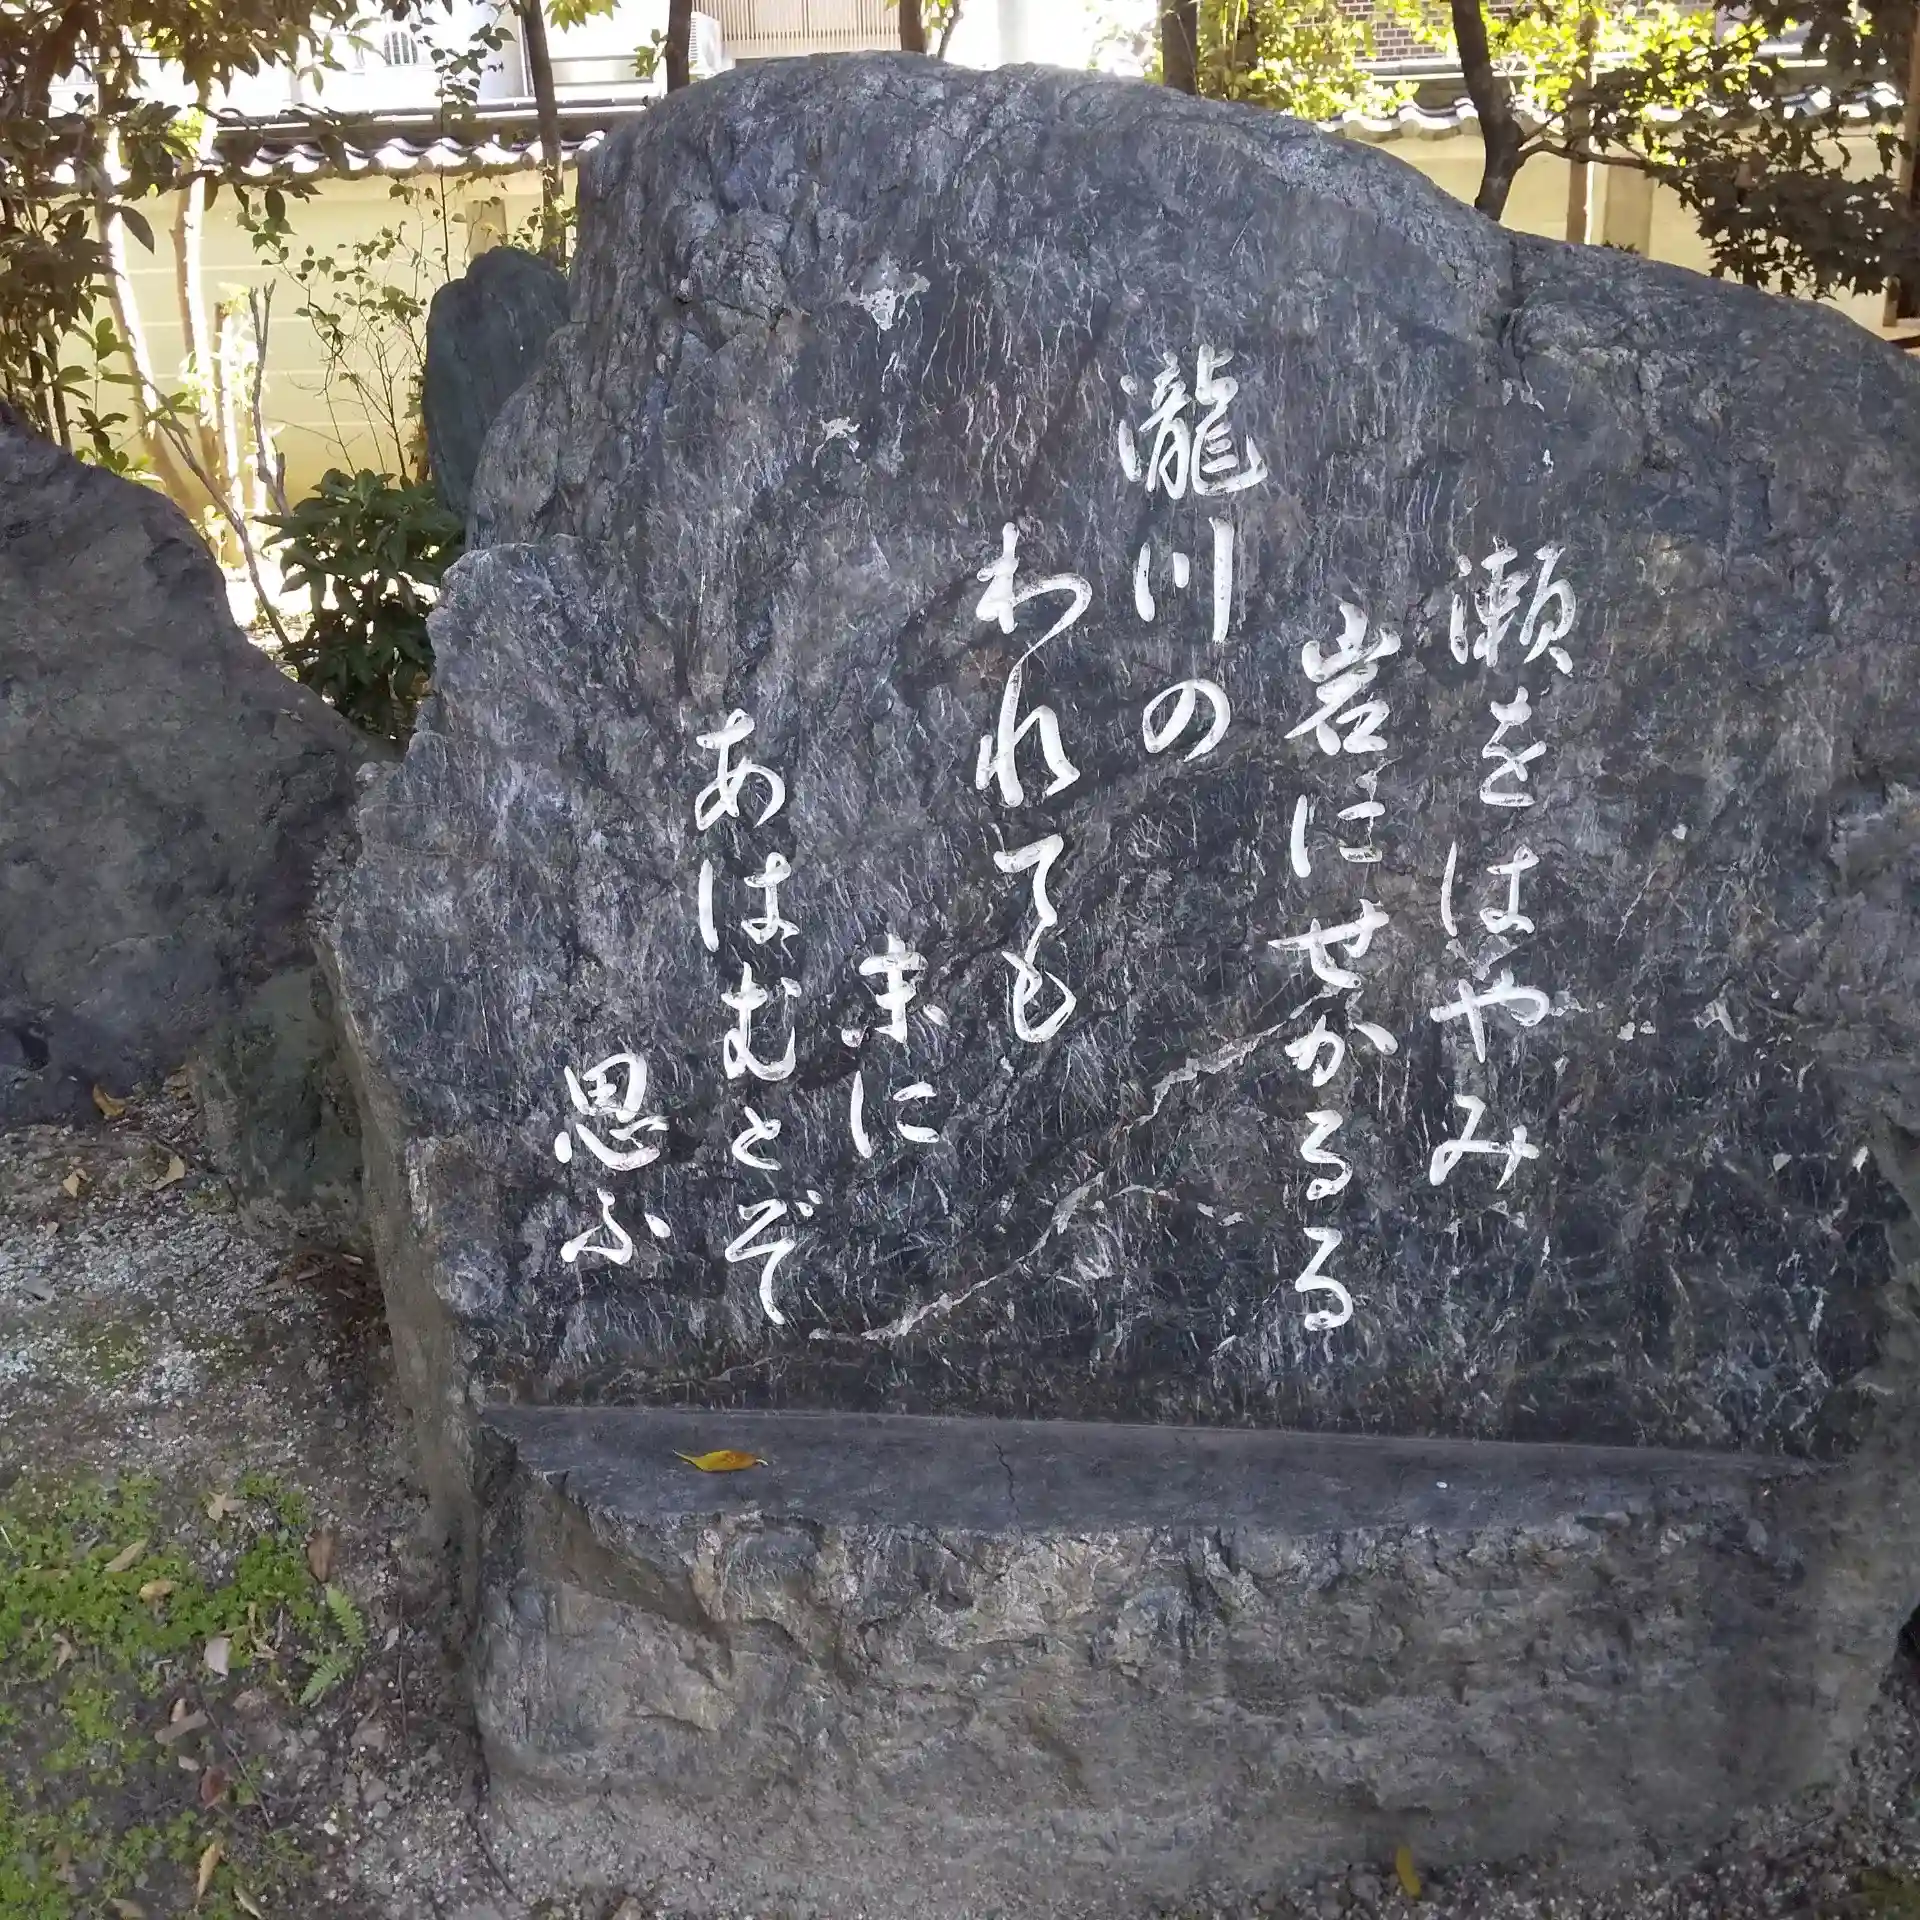 瀬をはやみ
岩にせかるる
瀧川の
われても
末に
あはむとぞ
思ふ